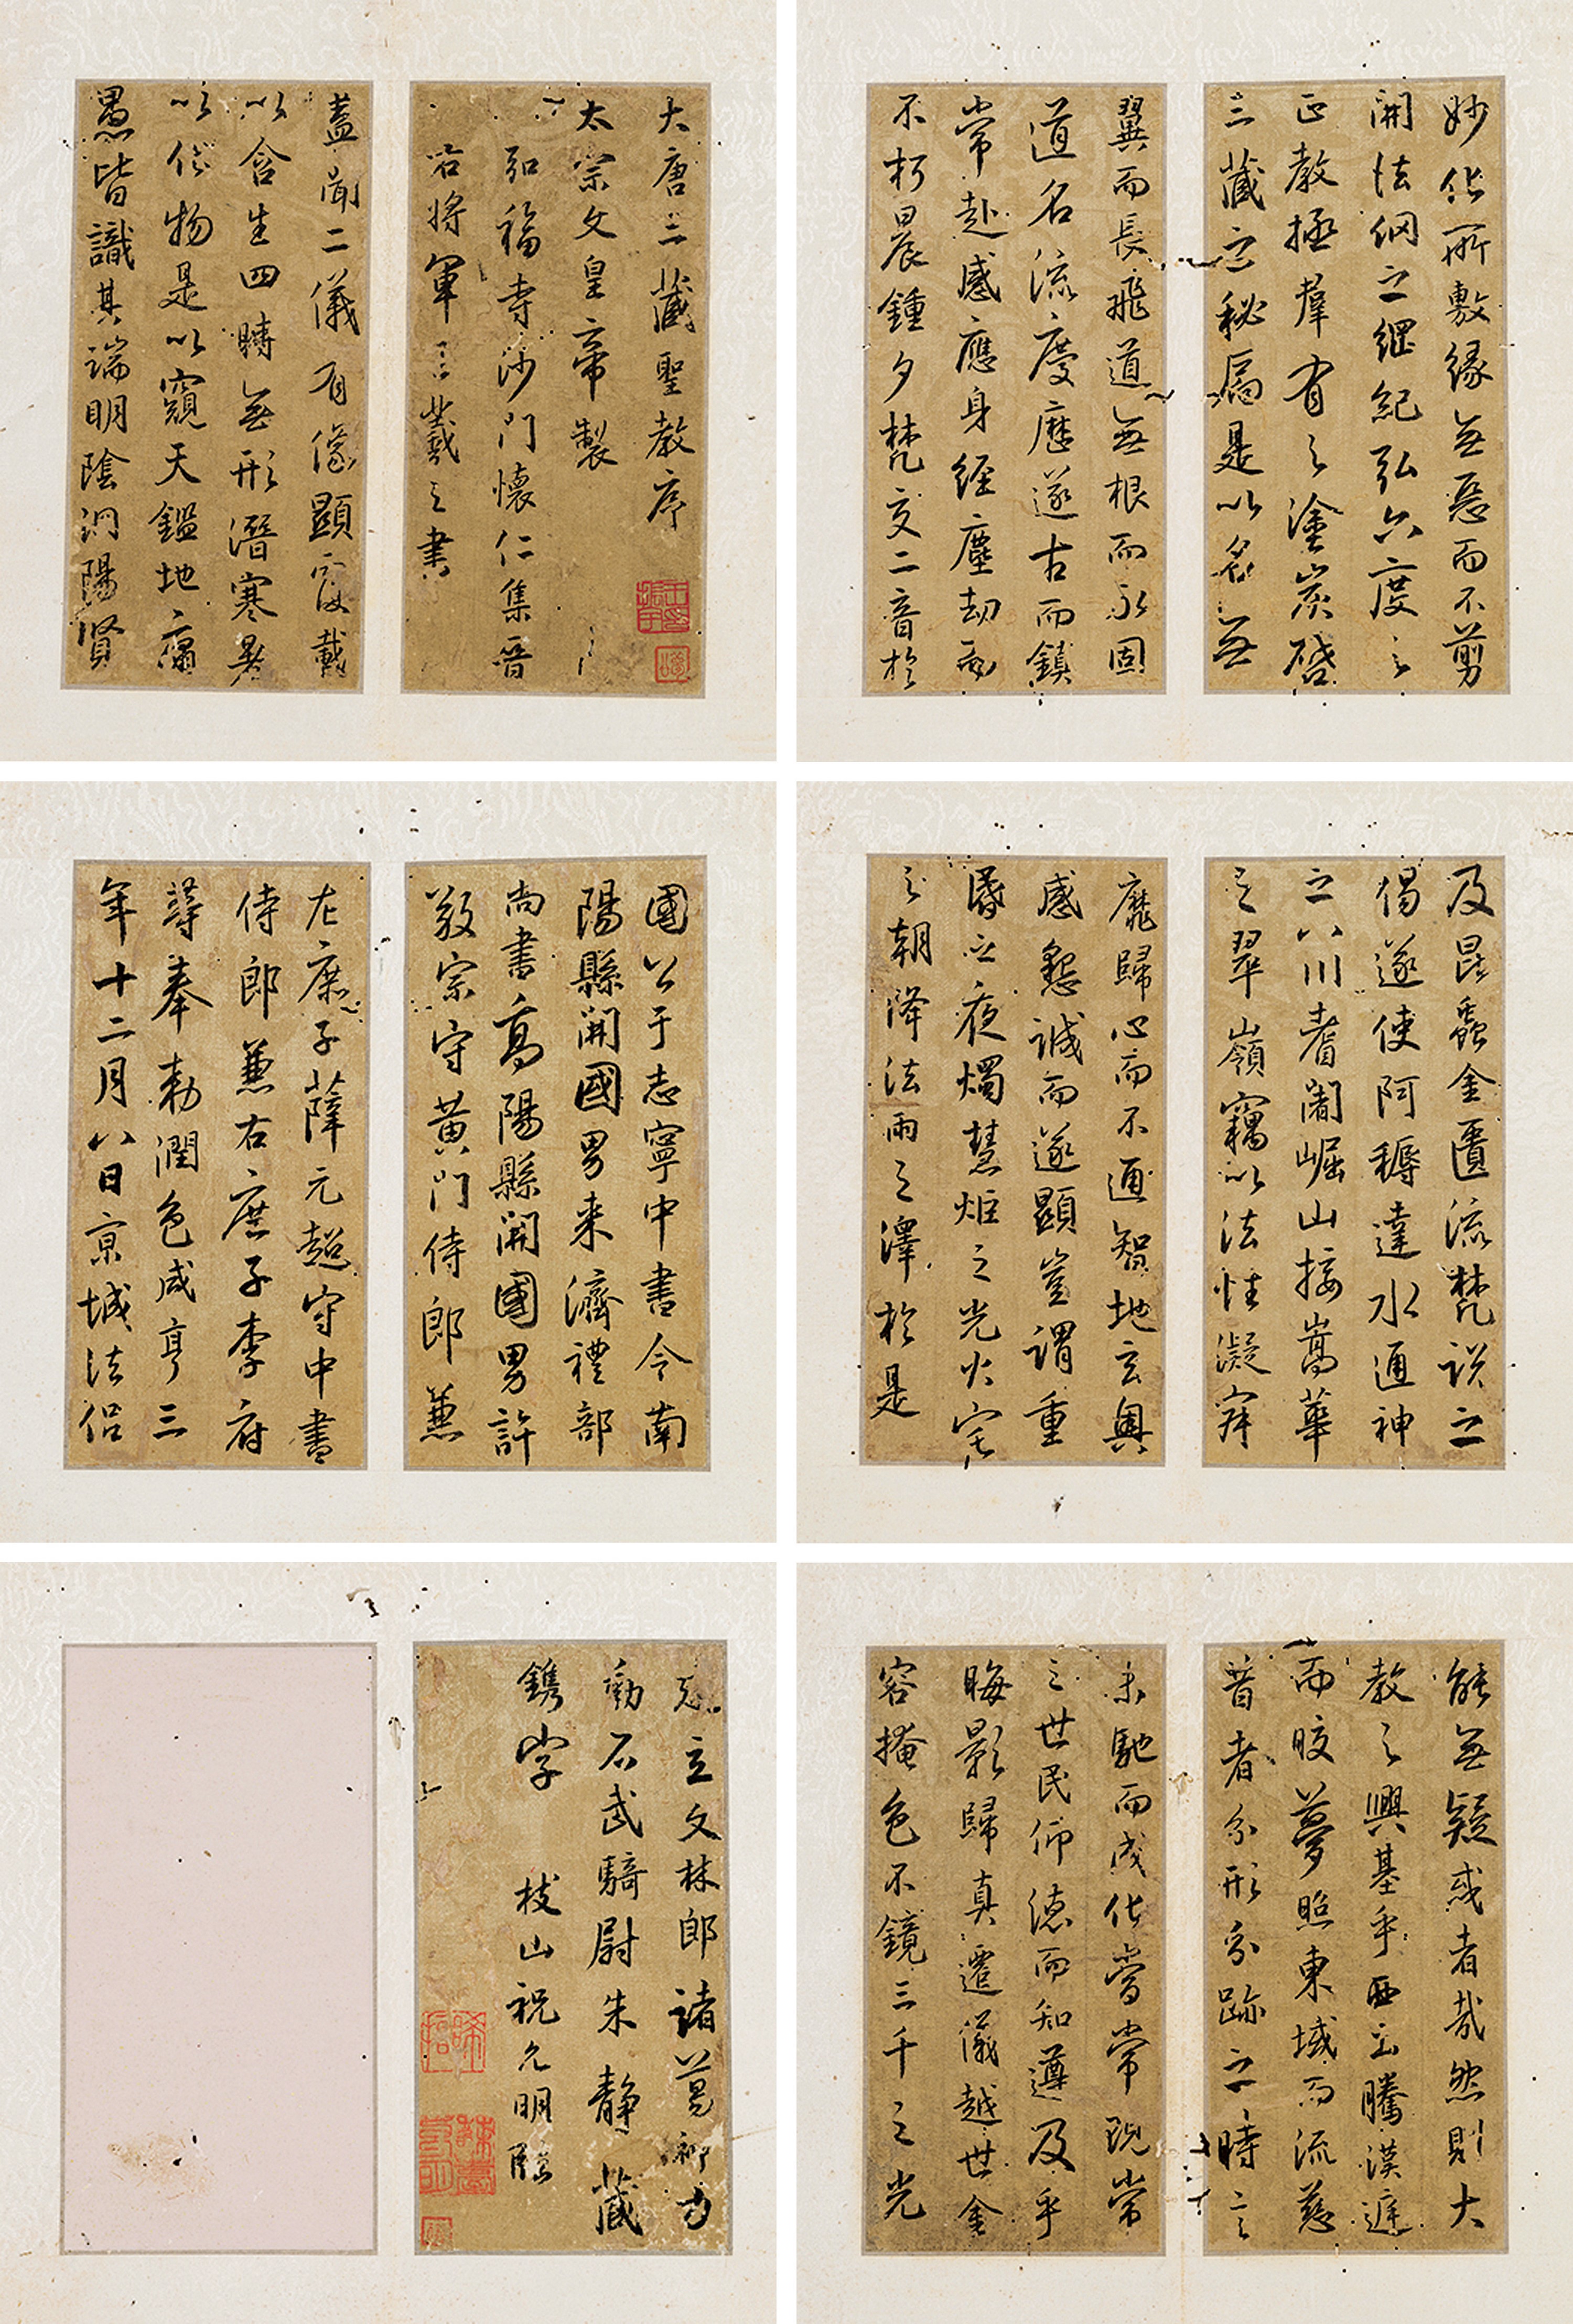 大唐三藏聖教序
太宗文皇帝製
弘福寺沙門懷仁集晉
右將軍王羲之書
蓋聞二儀有像顯覆載
以含生四時無形潛寒暑
以化物是以窺天鑑地庸
愚皆識其端明陰洞陽賢
妙化所敷緣無惡而不剪
開法網之綱紀弘六度之
正教拯羣有之塗炭啓
三藏之秘扃是以名無
翼而長飛道無根而永固
道名流慶歷遂古而鎮
常赴感應身經塵劫而
不朽晨鍾夕梵交二音於
國公于志寧中書令南
陽縣開國男来濟禮部
尚書高陽縣開國男許
敬宗守黃門侍郎兼
左庶子薛元超守中書
侍郎兼右庶子李府
等奉勅潤色咸亨三
年十二月八日京城法侶
及昆蟲金匱流梵說之
偈遂使阿耨達水通神
之八川耆闍崛山接嵩華
之翠嶺竊以法性凝寂
靡歸心而不通智地玄奧
感懇誠而遂顯豈謂重
昏之夜燭慧炬之光火宅
之朝降法雨之澤於是
建立文林郎諸葛神力
勒石武騎尉朱靜藏
鐫字 枝山祝允明臨
能無疑惑者哉然則大
教之興基乎西土騰漢庭
而皎夢照東域而流慈
昔者分形分跡之時言
未馳而成化當常現常
之世民仰德而知遵及乎
晦影歸真遷儀越世金
容掩色不鏡三千之光